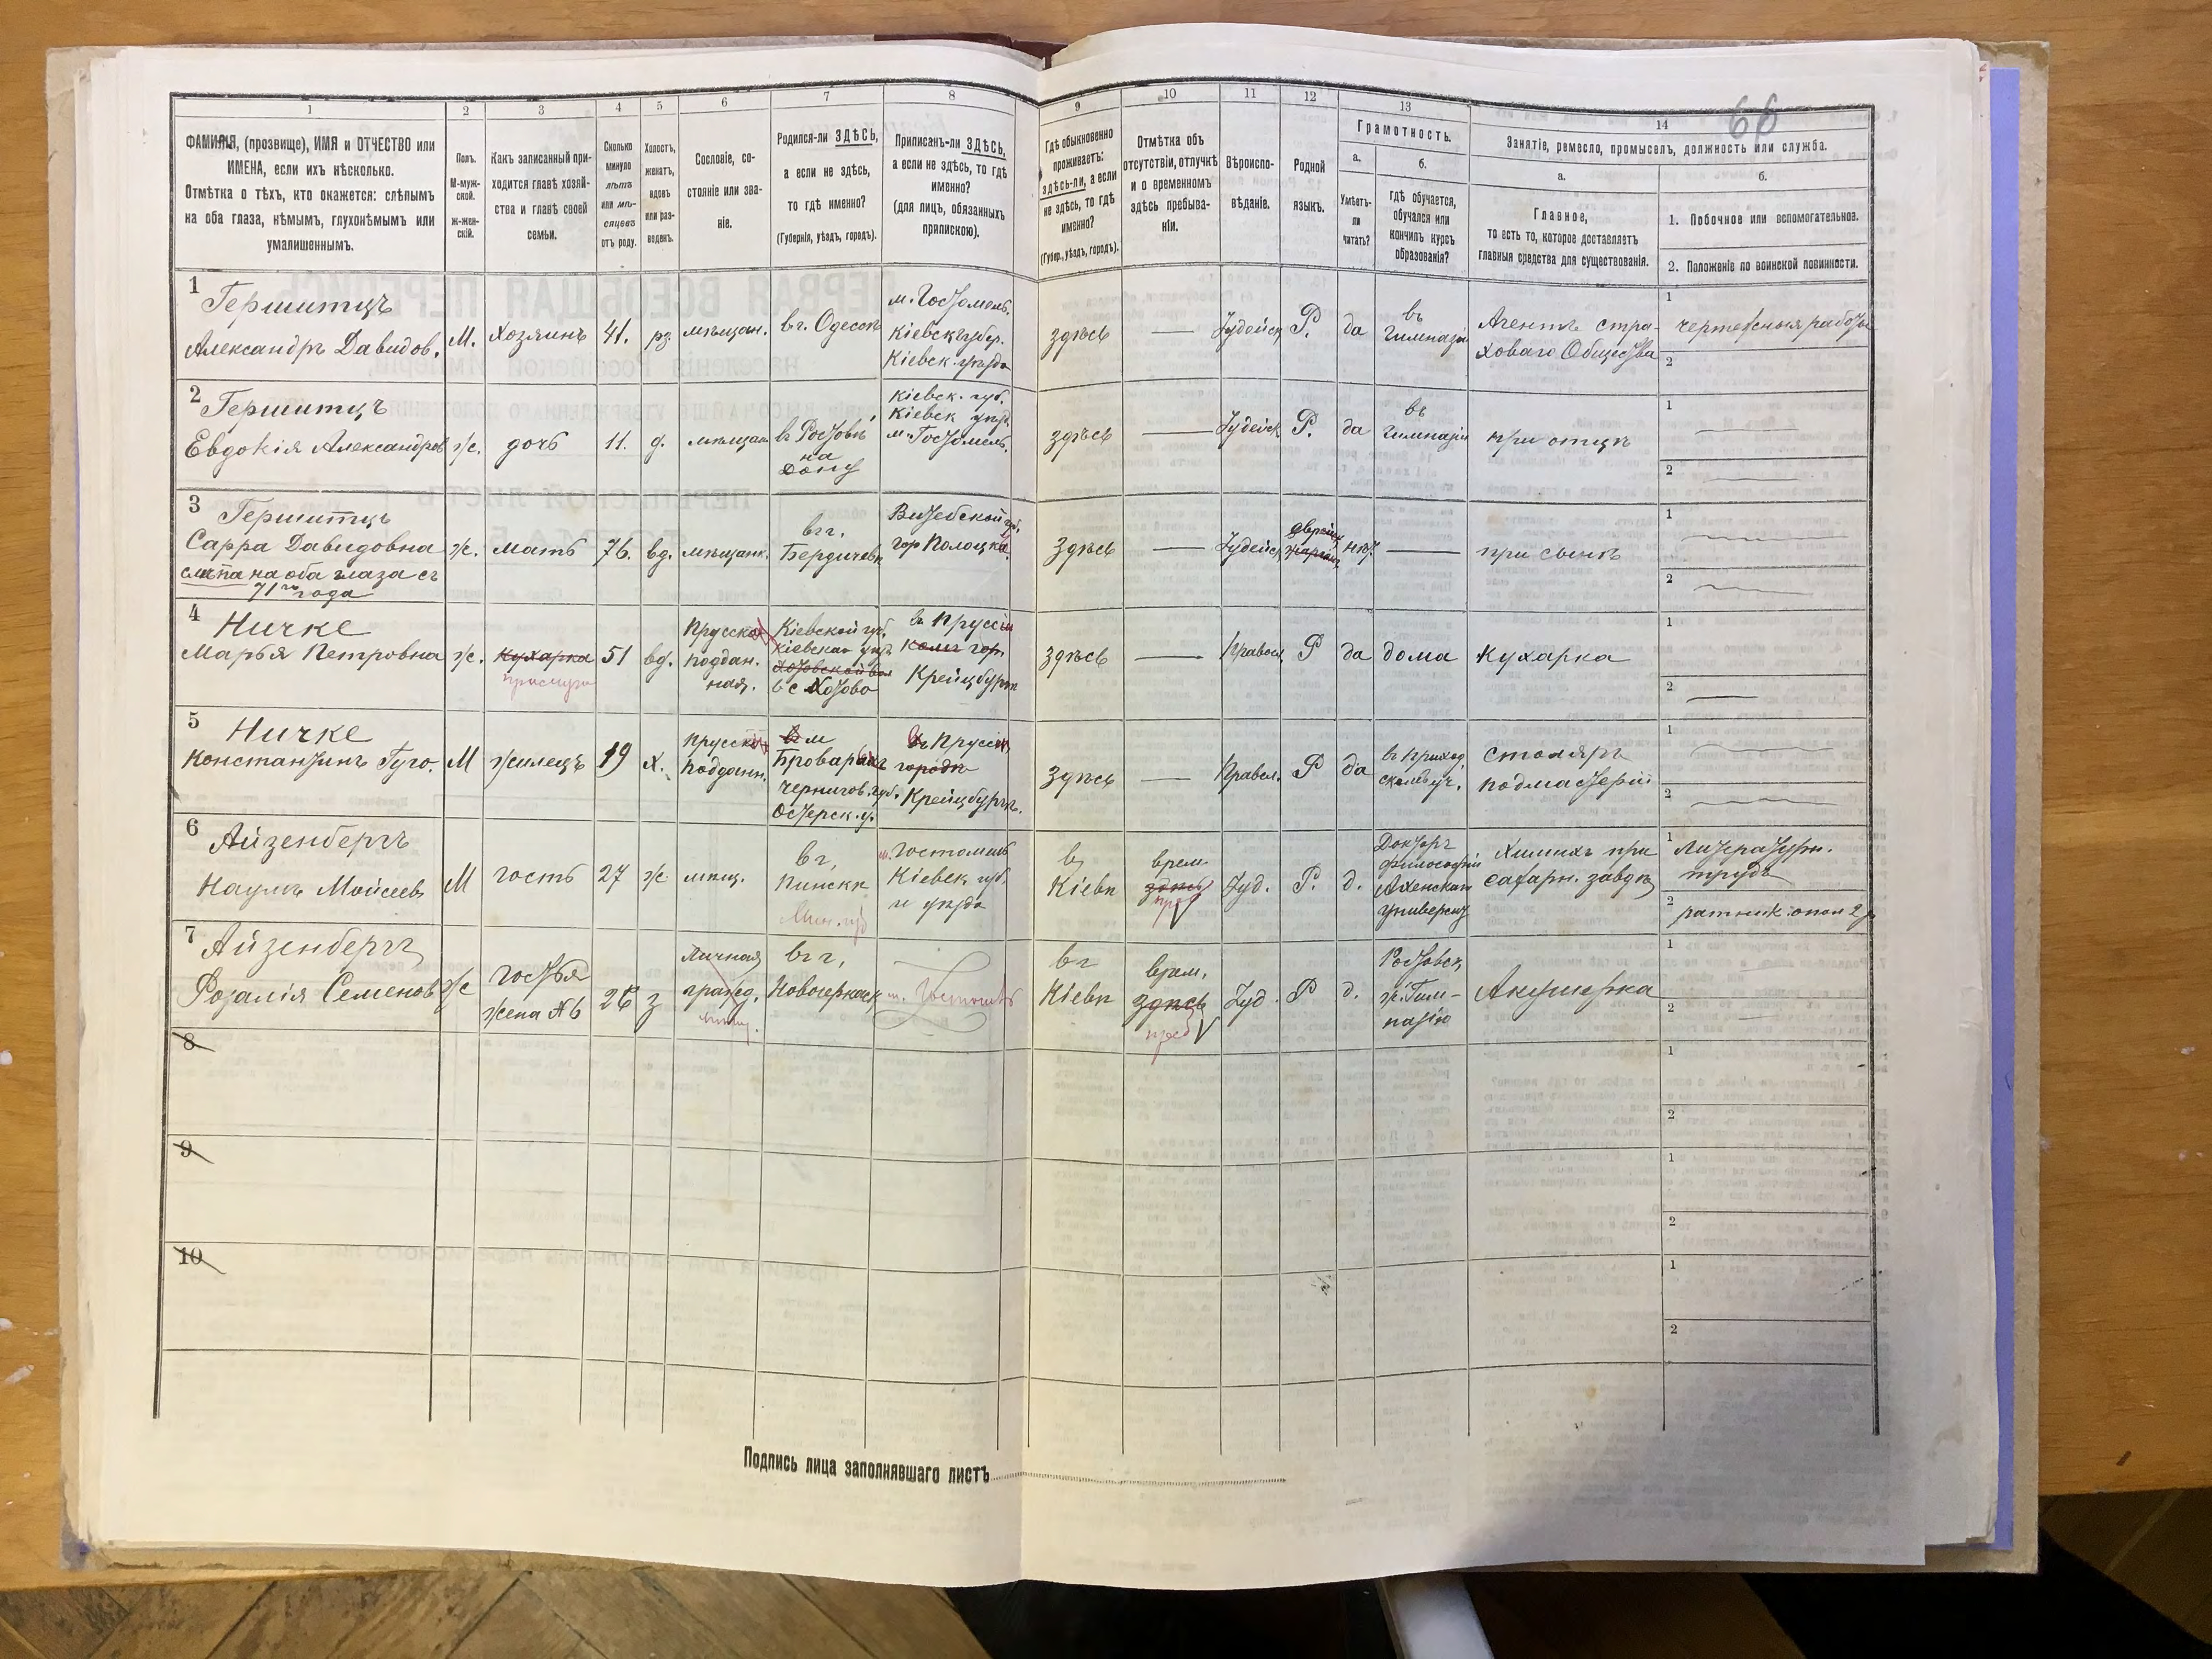 66
1
2
3
4
5
6
7
8
9
10
11
12
13
14
ФАМИЛІЯ, (прозвище), ИМЯ и ОТЧЕСТВО или
ИМЕНА, если ихъ нѣсколько.
Отмѣтка о тѣхъ, кто окажется: слѣпымъ
на оба глаза, нѣмымъ, глухонѣмымъ или
умалишеннымъ.
Полъ.
М-муж-
ской.
ж-жен-
скій.
Какъ записанный при-
ходится главѣ хозяй-
ства и главѣ своей
семьи.
Сколько
минуло
лѣтъ
или мѣ-
сяцевъ
отъ роду.
Холостъ,
женатъ,
вдовъ
или раз-
веденъ.
Сословіе, со-
стояніе или зва-
ніе.
Родился-ли ЗДѢСЬ,
а если не здѣсь,
то гдѣ именно?
(Губернія, уѣздъ, городъ).
Приписанъ-ли ЗДѢСЬ,
а если не здѣсь, то гдѣ
именно?
(для лицъ, обязанныхъ
припискою).
Гдѣ обыкновенно
проживаетъ:
здѣсь-ли, а если
не здѣсь, то гдѣ
именно?
(Губер., уѣздъ, городъ).
Отмѣтка объ
отсутствіи, отлучкѣ
и о временномъ
здѣсь пребыва-
ніи.
Вѣроиспо-
вѣданіе.
Родной
языкъ.
Грамотность.
а.
Умѣетъ-
ли
читать?
б.
гдѣ обучается,
обучался или
кончилъ курсъ
образованія?
Занятіе, ремесло, промыселъ, должность или служба.
а.
Главное,
то есть то, которое доставляетъ
главныя средства для существованія.
б.
1. Побочное или вспомогательное.
2. Положеніе по воинской повинности.
1
Гершитцъ
Александръ Давидов.
М.
Хозяинъ
41.
рз.
мѣщан.
вг. Одессѣ
м. Гостомель.
Кіевск губер.
Кіевск. уѣзда
здѣсь
Іудейск
Р.
да
въ
гимназіи
Агентъ стра-
ховаго Общества
1
чертежныя работы
2
2
Гершитцъ
Евдокія Александров
ж.
дочь
11.
д.
мѣщан
въ Ростовѣ
на
Дону
Кіевск. губ.
Кіевск уѣзд.
м. Гостомель.
здѣсь
Іудейск
Р.
да
въ
гимназіи
при отцѣ
1
2
3
Гершитцъ
Сарра Давидовна
слѣпа на оба глаза съ
71го года
ж.
мать
76.
вд.
мѣщанк.
вг.
Бердичевѣ
Витебской губ.
гор Полоцка
здѣсь
Іудейск
Еврейск
жаргон
нѣт.
при сынѣ
1
2
4
Ничке
Марья Петровна
ж.
Кухарка
прислуга
51
вд.
Прусская
поддан.
ная.
Кіевской губ.
Кіевскаго уѣз.
Хотовской вол
в с Хотово
въ Пруссіи
гор
Крейцбургъ
здѣсь
Правосл.
Р
да
дома
Кухарка
1
2
5
Ничке
Константинъ Гуго.
М
жилецъ
19
х.
Прусскій
Подданн.
в м
Бровары
чернигов. губ.
Остерск. у.
въ Пруссіи
городѣ
Крейцбургѣ.
здѣсь
Правосл.
Р
да
в приход.
скомъ уч.
столяръ
подмастерій
1
2
6
Айзенбергъ
Наумъ Мойсеев
М
гость
27
ж
мѣщ.
вг.
Пинскѣ
Мин. губ
м. Гостомель
Кіевск. губ.
и уѣзда
в
Кіевѣ
врем.
здѣсь
Іуд.
Р.
д.
Докторъ
философіи
Университ
Химикъ при
сахарн. завдѣ
1
Литературн.
трудъ
2
ратник. опол 2 р
7
Айзенбергъ
Розалія Семенов
ж
гостья
жена №6
26
з
Личная
гражд.
мѣщ.
вг.
Новочеркаск
м. Гостомель
вг
Кіевѣ
врем.
здѣсь
Іуд.
Р
д.
Ростовск.
ж. Гим-
назію
Акушерка
1
2
8
1
2
9
1
2
10
1
2
Подпись лица заполнявшаго листъ